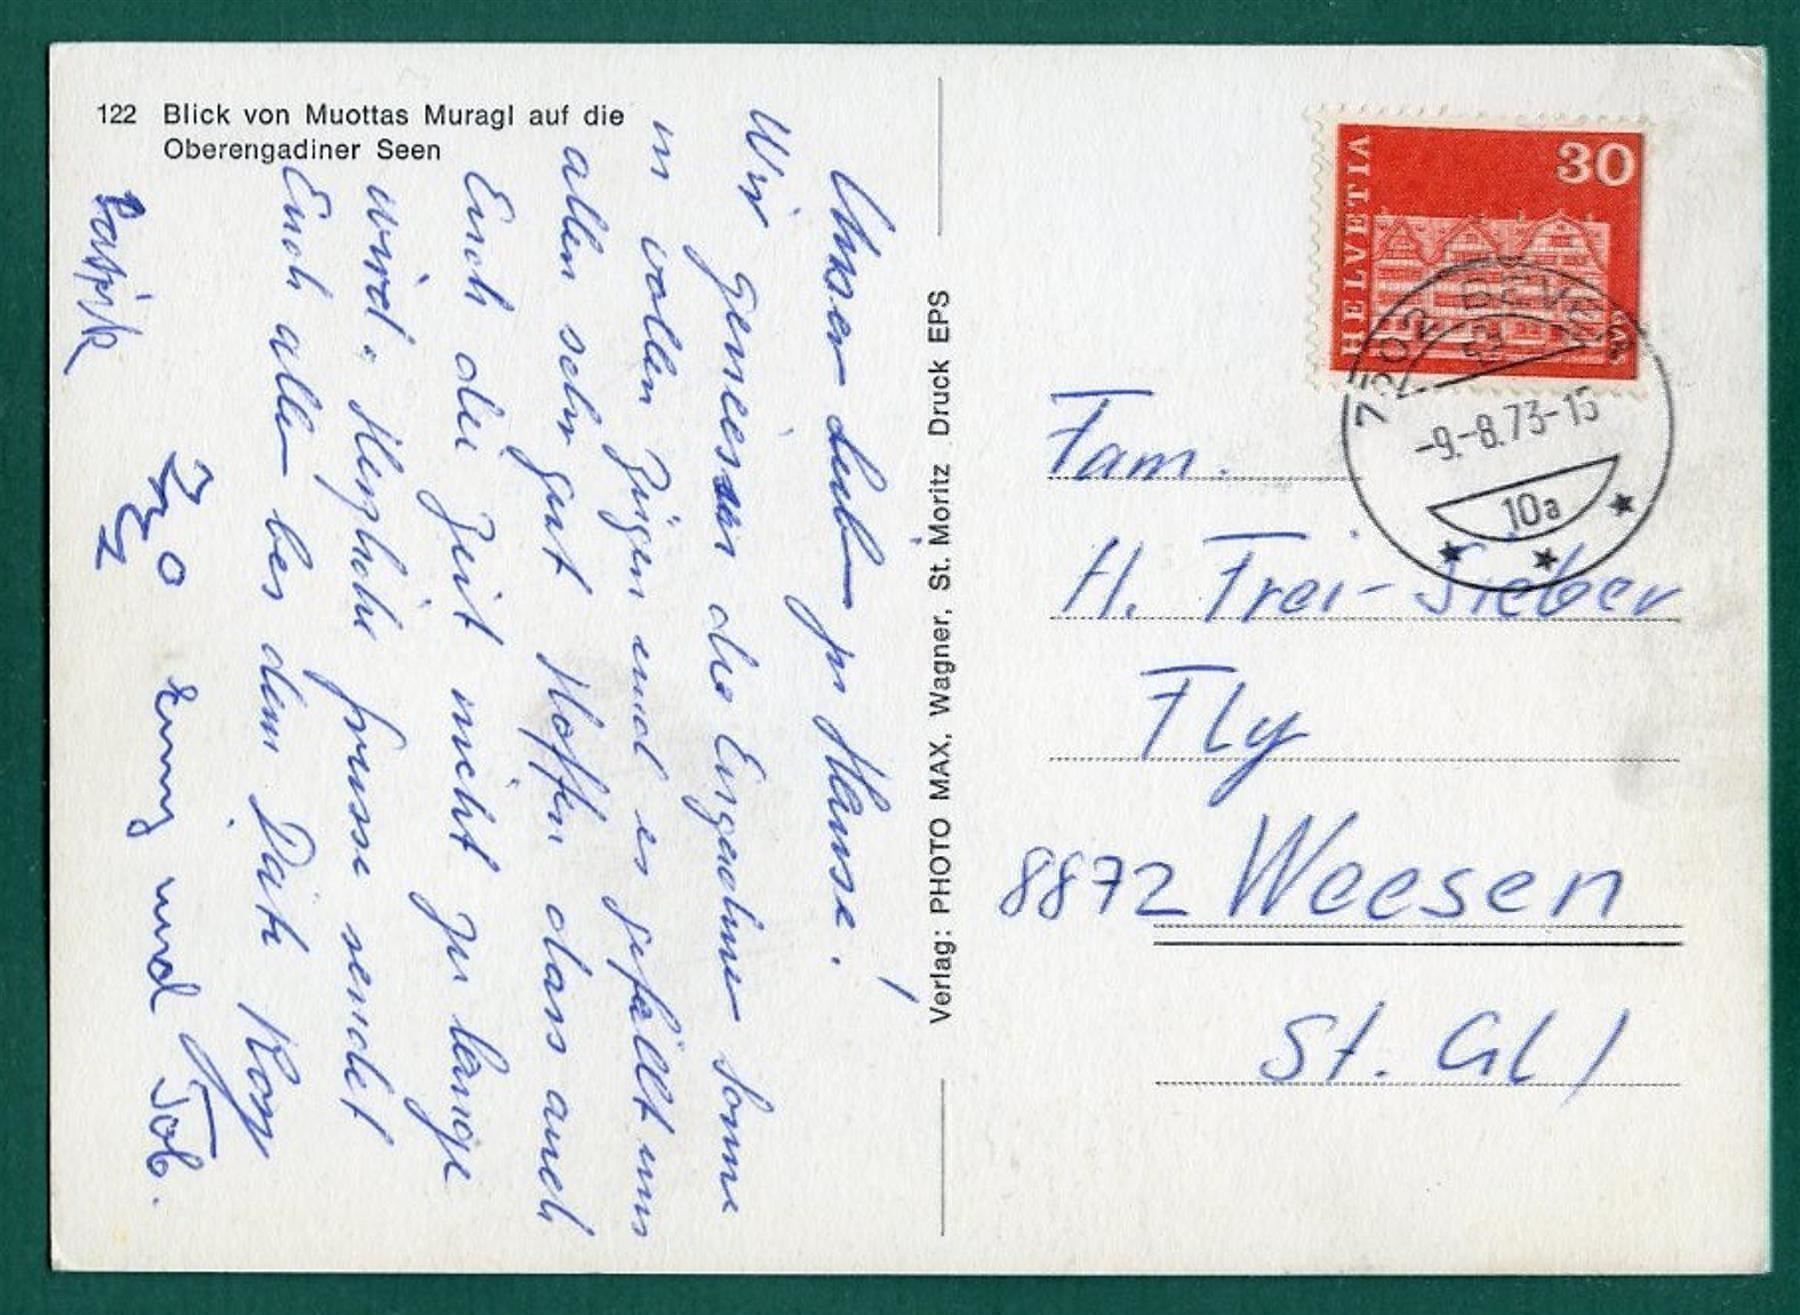 122 Blick von Muottas Muragl auf die
Oberengadiner Seen
Unser Lieben zu Hause!
Wir geniessen die Engadiner Sonne
in vollen Zügen und es gefällt uns
allen sehr gut. Hoffen dass auch
Euch die Zeit nicht zu lange
wird. Herzliche Grüsse sendet
Euch allen bes dem Päth Rony
Enny und Tob.
Patrik
Verlag: PHOTO MAX, Wagner, St. Moritz Druck EPS
HELVETIA
30
7502 BEVER
-9.-8.73-15
10a
Fam.
H. Frei-Sieber
Fly
8872 Weesen
St. Gl)